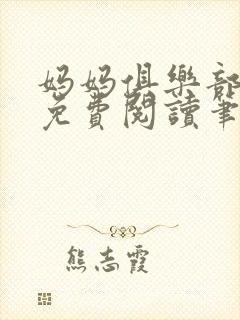 妈妈俱樂部
免費閱讀筆
熊志霞